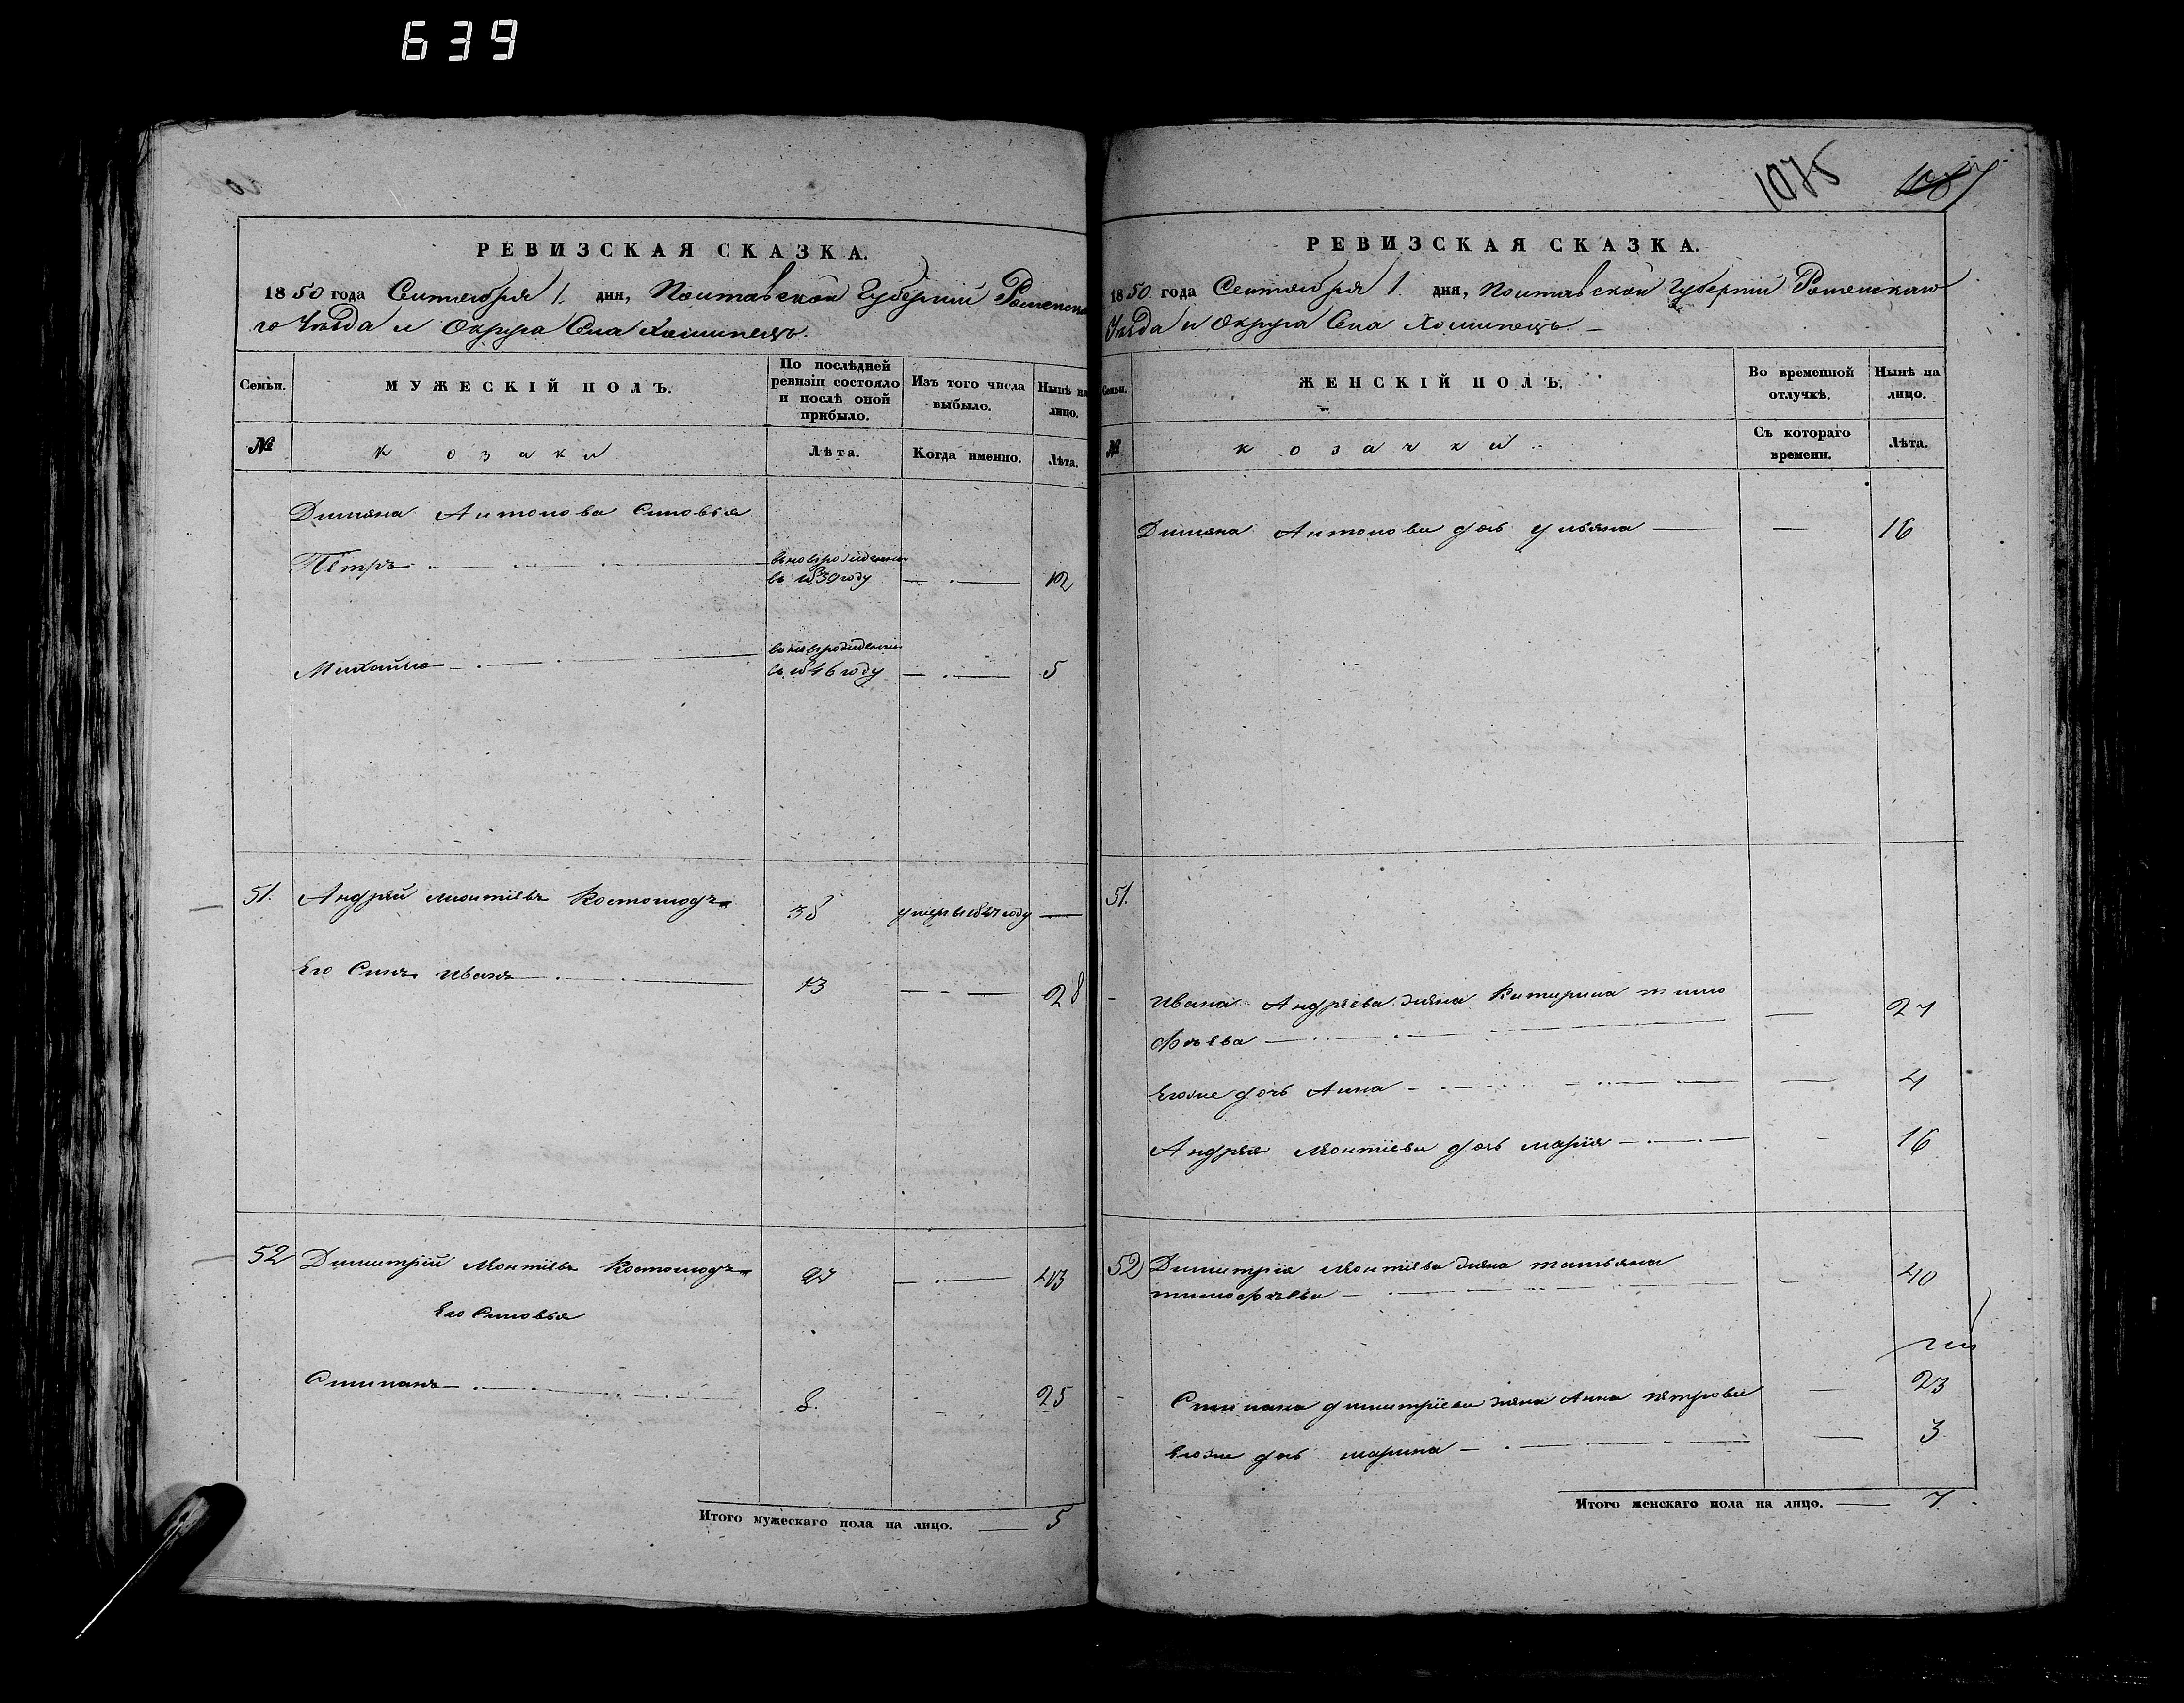 639
РЕВИЗСКАЯ СКАЗКА.
1850 года Сентября 1. дня, Полтавской Губернии Роменска
го Уезда и Округа Села Хоминецъ.
Семьи.
МУЖЕСКІЙ ПОЛЪ.
По послѣдней ревизіи состояло и послѣ оной прибыло.
Изъ того числа выбыло.
Нынѣ на лицо.
№
козаки
Лѣта.
Когда именно.
Лѣта.
Димяна Антонова синовья
Пётръ
въ 1839 году
12
Михайло
въ 1846 году
5
51. Андрей Леонтіевъ
35 умеръ въ 1847 году
Его Синъ Иванъ
13
28
52 Димитрій Леонтіевъ
43
Его Синовья
Стипанъ
8.
25
Итого мужескаго пола на лицо. 5
1075
1087
РЕВИЗСКАЯ СКАЗКА.
1850 года Сентября 1. дня, Полтавской Губерніи Роменскаго
Уезда и Округа Села Хоминецъ.
Семьи.
ЖЕНСКІЙ ПОЛЪ.
Во временной отлучкѣ.
Нынѣ на лицо.
№
козачки
Съ котораго времени.
Лѣта.
Димяна Антонова дочь Ульяна
16
51.
Ивана Андреева жена Катерина Тимо
фѣева
27
Егоже дочь Анна
4
Андрея Леонтіева дочь Марія
16
52 Димитрія Леонтіева жена Татьяна
Тимофѣева
40
Стипана Димитріева жена Анна Петрова
23
Егоже дочь Марина
3
Итого женскаго пола на лицо. 7.